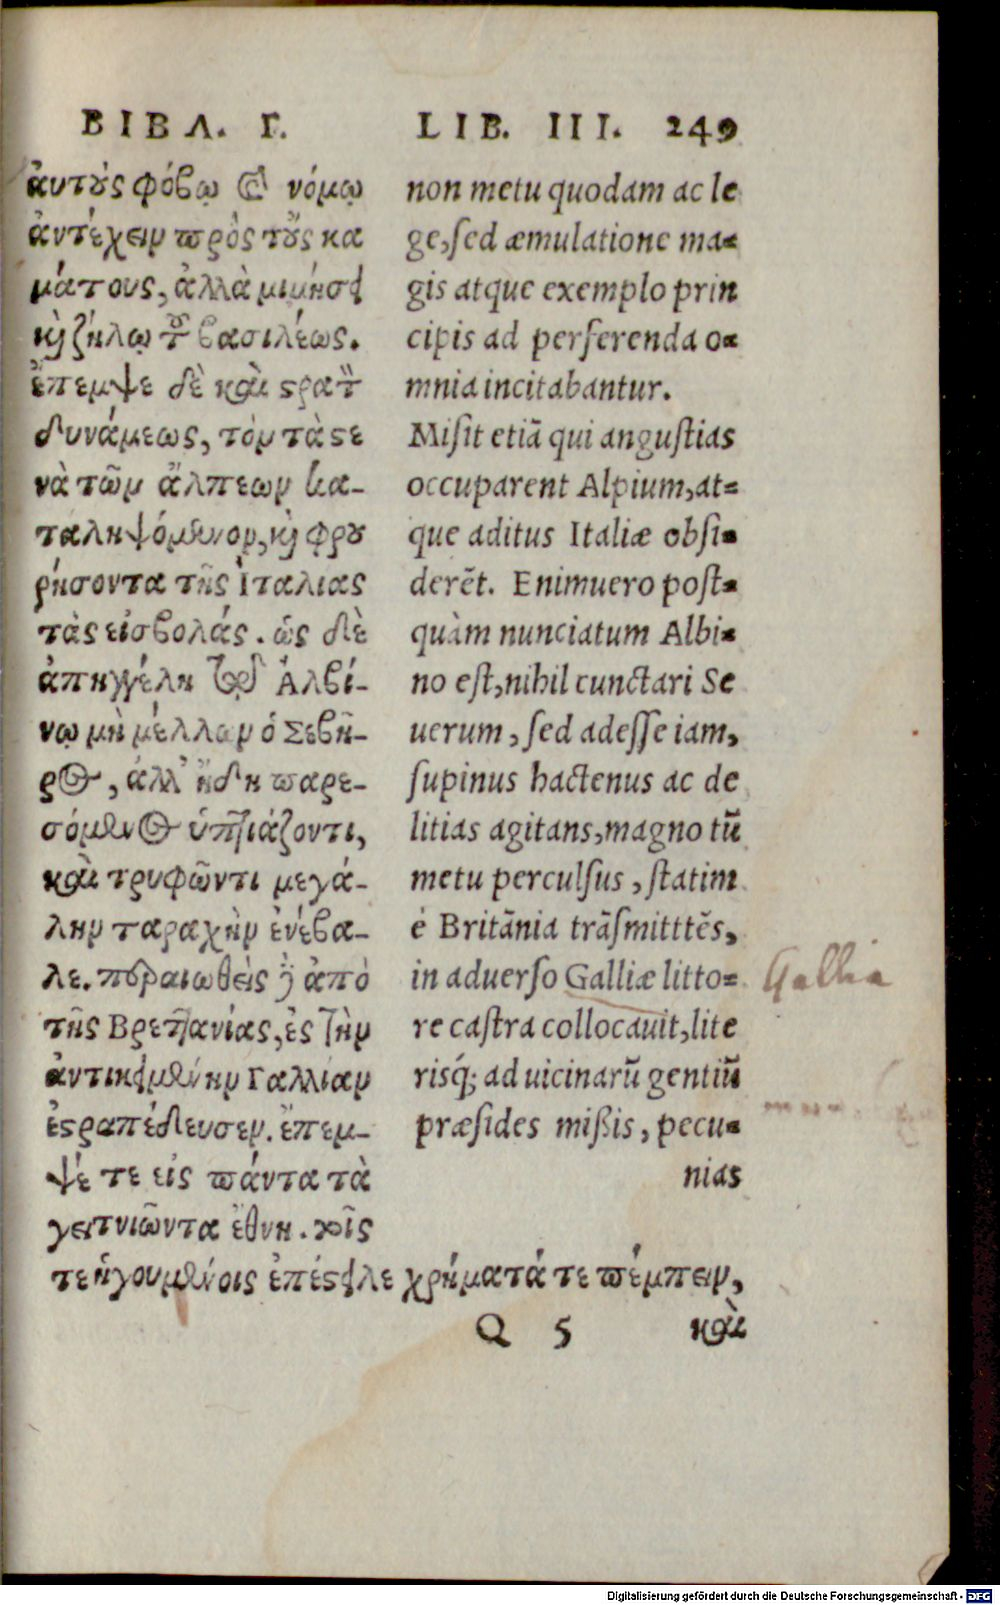 ΒΙΒΛ. Γ.
ἀυτοὺς φόβῳ καὶ νόμῳ
ἀντέχειν πρὸς τοὺς κα
μάτους, ἀλλὰ μιμήσει
καὶ ζήλῳ τοῦ βασιλέως.
ἔπεμψε δὲ καὶ στρατη
δυνάμεως, τὸν τὰ στε
νὰ τῶν ἄλπεων κα-
ταληψόμενον, καὶ φρου
ρήσοντα τῆς Ἰταλίας
τὰς εἰσβολάς. ὡς δὲ
ἀπηγγέλη τῷ δ Ἀλβί-
νῳ μὴ μέλλων ὁ Σεβῆ-
ρος, ἀλλ' ἤδη παρε-
σόμενος ὑπτιάζοντι,
καὶ τρυφῶντι μεγά-
λην ταραχὴν ἐνέβα-
λε. περαιωθεὶς δὲ ἀπὸ
τῆς Βρεττανίας, ἐς τὴν
ἀντικειμένην Γαλλίαν
ἐστραπέδευσεν. ἔπεμ-
ψέ τε εἰς πάντα τὰ
γειτνιῶντα ἔθνη. τοῖς
τε ἡγουμένοις ἐπέστειλε χρήματά τε πέμπειν,
LIB. III. 249
non metu quodam ac le
ge, sed æmulatione ma-
gis atque exemplo prin
cipis ad perferenda o-
mnia incitabantur.
Misit etiã qui angustias
occuparent Alpium, at-
que aditus Italiæ obsi-
derẽt. Enimuero post-
quàm nunciatum Albi-
no est, nihil cunctari Se
uerum, sed adesse iam,
supinus hactenus ac de
litias agitans, magno tũ
metu perculsus, statim
è Britãnia trãsmitttẽs,
in aduerso Galliæ litto-
re castra collocauit, lite
risq́; ad uicinarũ gentiũ
præsides mißis, pecu-
nias
Gallia
Q 5 καὶ
Digitalisierung gefördert durch die Deutsche Forschungsgemeinschaft - DFG